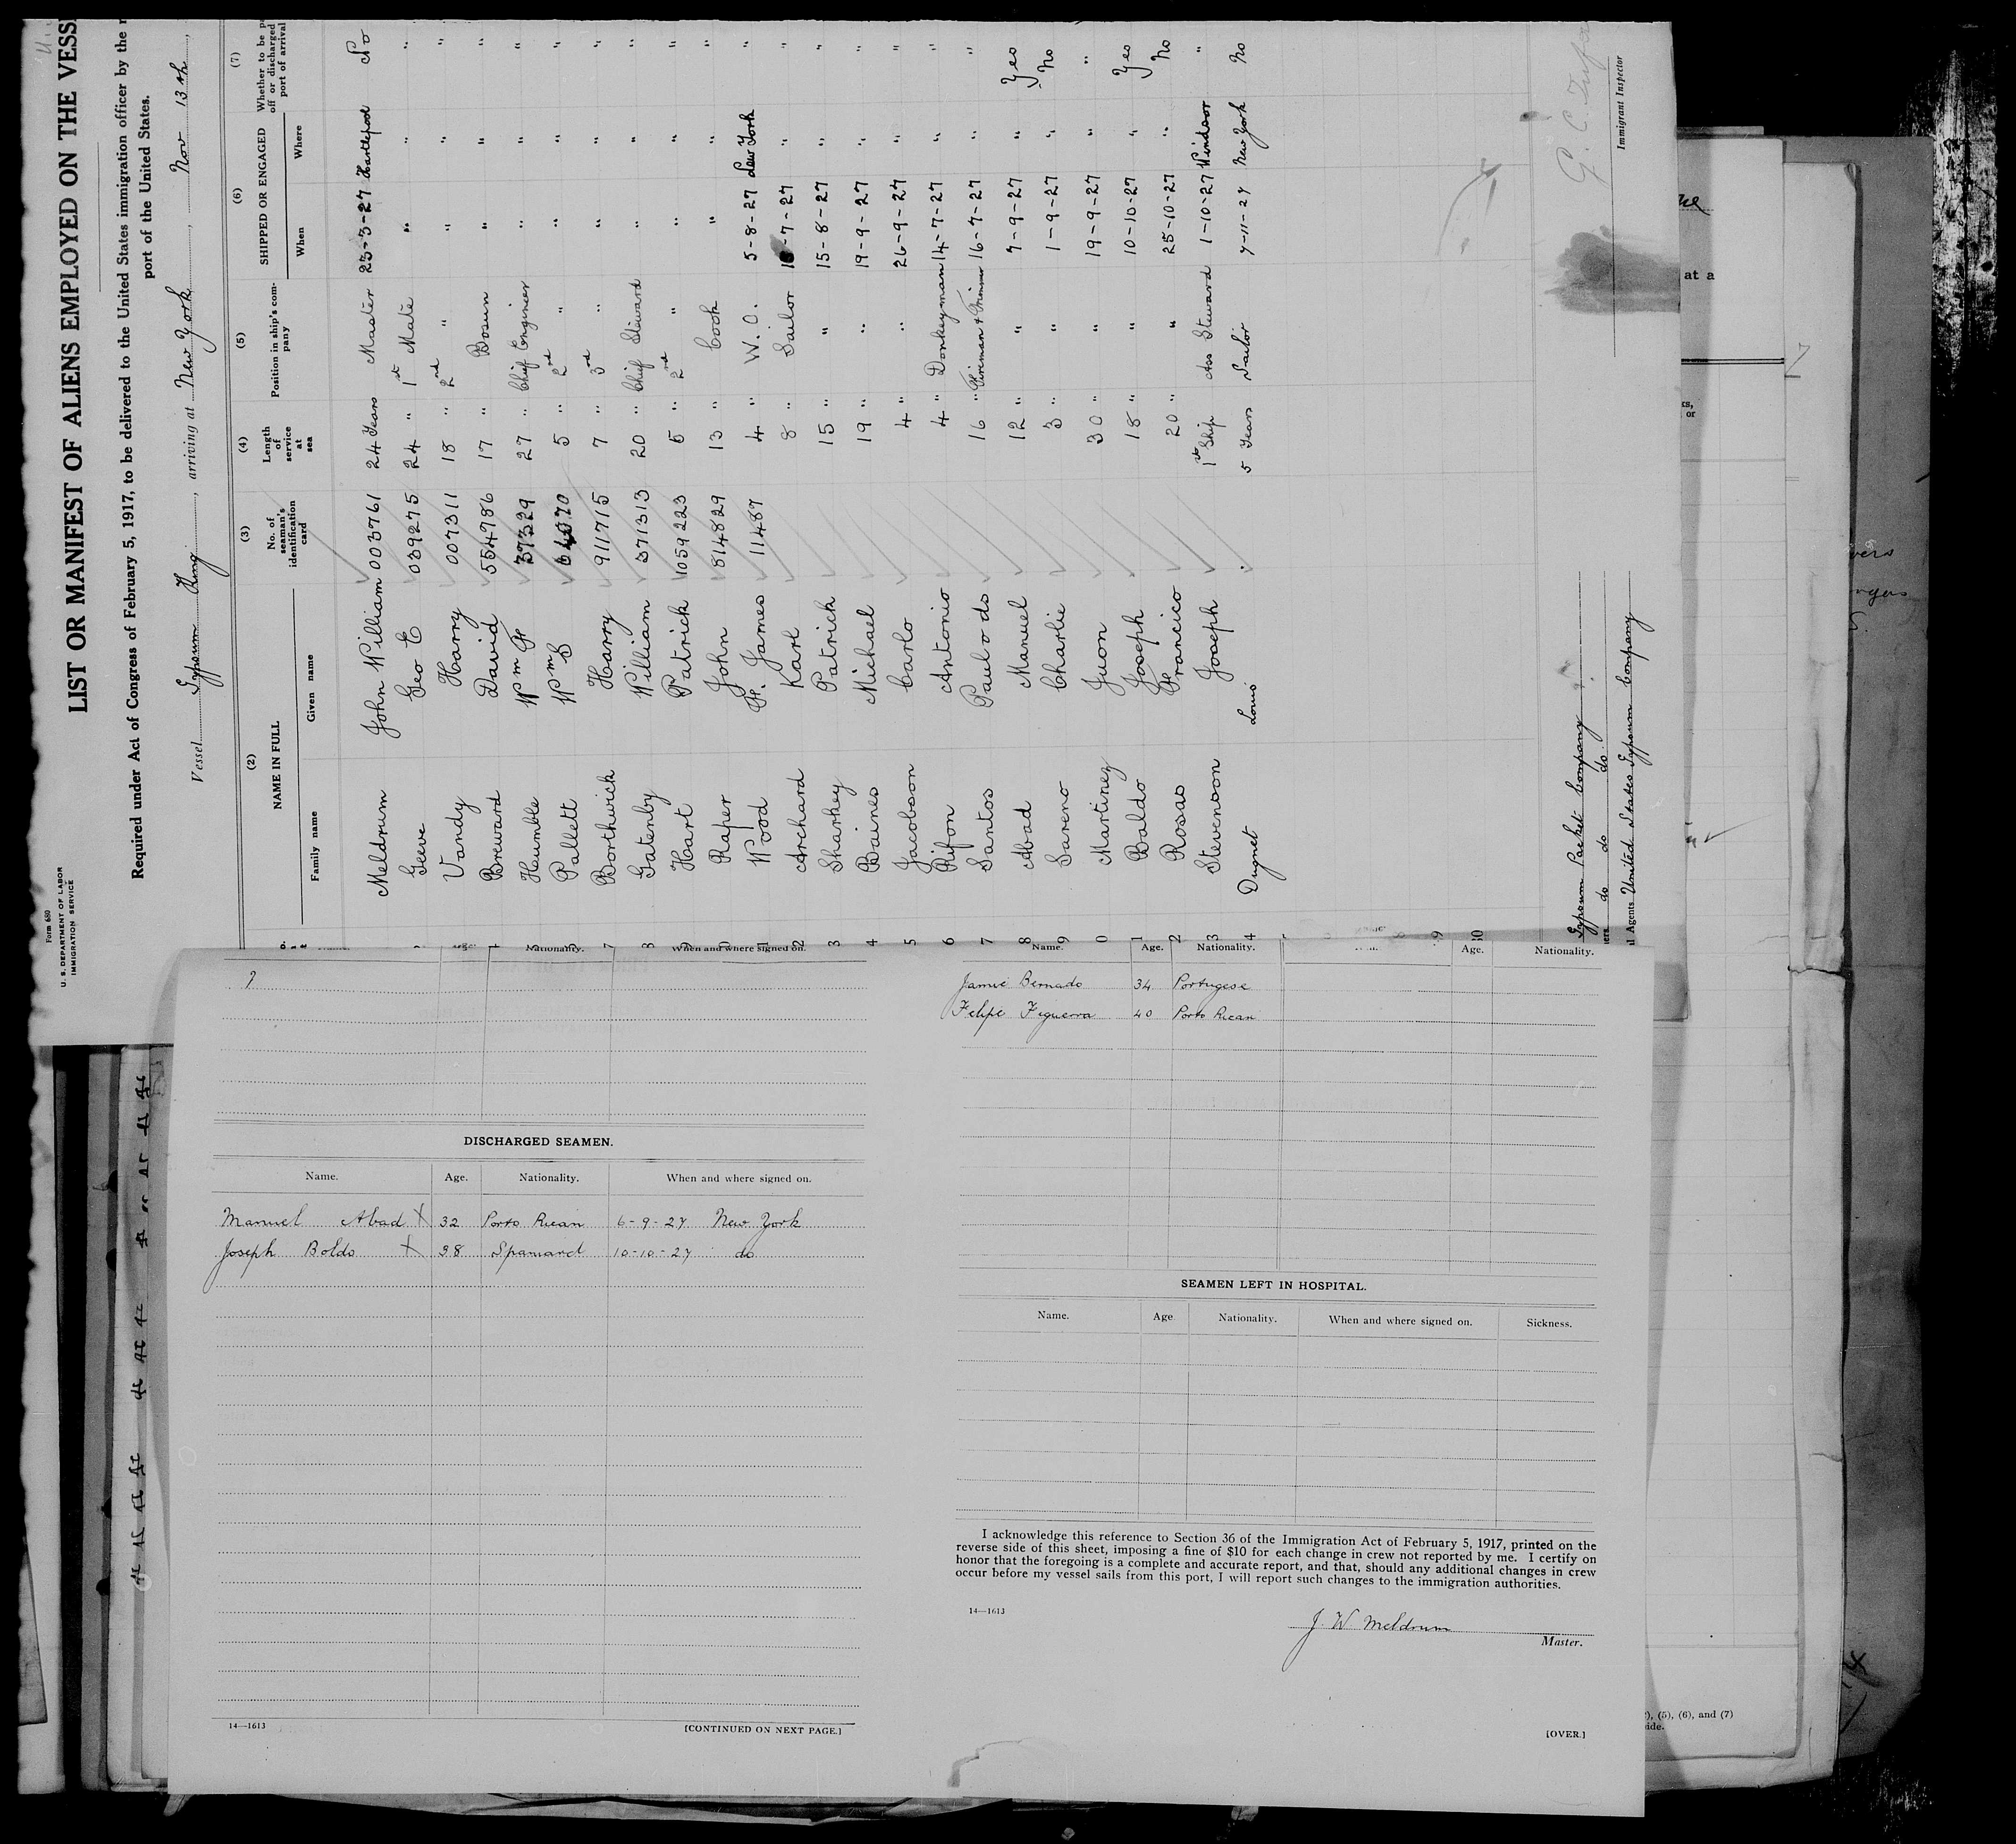 Form 680
U. S. DEPARTMENT OF LABOR
IMMIGRATION SERVICE
LIST OR MANIFEST OF ALIENS EMPLOYED ON THE VESS
Required under Act of Congress of February 5, 1917, to be delivered to the United States immigration officer by the
port of the United States.
Vessel Gypsum King, arriving at New York, Nov 13th,
(2) (3) (4) (5) (6) (7)
NAME IN FULL
Family name Given name
No. of seaman's identification card
Length of service at sea
Position in ship's company
SHIPPED OR ENGAGED
When Where
Whether to be p
off or discharged
port of arrival
Meldrum John William 003761 24 Years Master 23-3-27 Hartlepool No
Geeve Geo E 039275 24 " 1st Mate " " "
Vandy Harry 007311 18 " 2nd " " " "
Breward David 554986 17 " Bosun " " "
Humble Wm 37329 27 " Chief Engineer " " "
Pallett Wm S 5 " 2nd " " " "
7 Borthwick Harry 911715 7 " 3rd " " " "
8 Gatenby William 371313 20 " Chief Steward " " "
9 Hart Patrick 1059223 5 " 2nd " " " "
0 Raper John 814829 13 " Cook " " "
1 Wood F. James 11487 4 " W.O. 5-8-27 New York "
2 Archard Karl 8 " Sailor -7-27 " "
3 Sharkey Patrick 15 " " 15-8-27 " "
4 Baines Michael 19 " " 19-9-27 " "
5 Jacobson Carlo 4 " " 26-9-27 " "
6 Rifon Antonio 4 " Donkeyman 14-7-27 " "
7 Santos Paulo do 16 " Fireman & Trimmer 16-7-27 " "
8 Abad Manuel 12 " " 7-9-27 " Yes
9 Sareno Charlie 3 " " 1-9-27 " No
0 Martinez Juon 30 " " 19-9-27 " "
1 Baldo Joseph 18 " " 10-10-27 " Yes
2 Rosas Francico 20 " " 25-10-27 " No
3 Stevenson Joseph 1st Ship Ass Steward 1-10-27 Windsor "
4 Dugnet Louis 5 Years Sailor 7-11-27 New York No
Gypsum Packet Company
ners do do do.
l Agents United States Gypsum Company
Immigrant Inspector
Nationality. When and where signed on.
Name. Age. Nationality. Age. Nationality.
Jamie Bernado 34 Portugese
Felipe Figuerra 40 Porto Rican
DISCHARGED SEAMEN.
Name. Age. Nationality. When and where signed on.
Manuel Abad X 32 Porto Rican 6-9-27 New York
Joseph Boldo X 38 Spaniard 10-10-27 do
14—1613 [CONTINUED ON NEXT PAGE.]
SEAMEN LEFT IN HOSPITAL.
Name. Age Nationality. When and where signed on. Sickness.
I acknowledge this reference to Section 36 of the Immigration Act of February 5, 1917, printed on the
reverse side of this sheet, imposing a fine of $10 for each change in crew not reported by me. I certify on
honor that the foregoing is a complete and accurate report, and that, should any additional changes in crew
occur before my vessel sails from this port, I will report such changes to the immigration authorities.
14—1613
J. W Meldrum
Master.
[OVER.]
at a
), (5), (6), and (7)
ide.